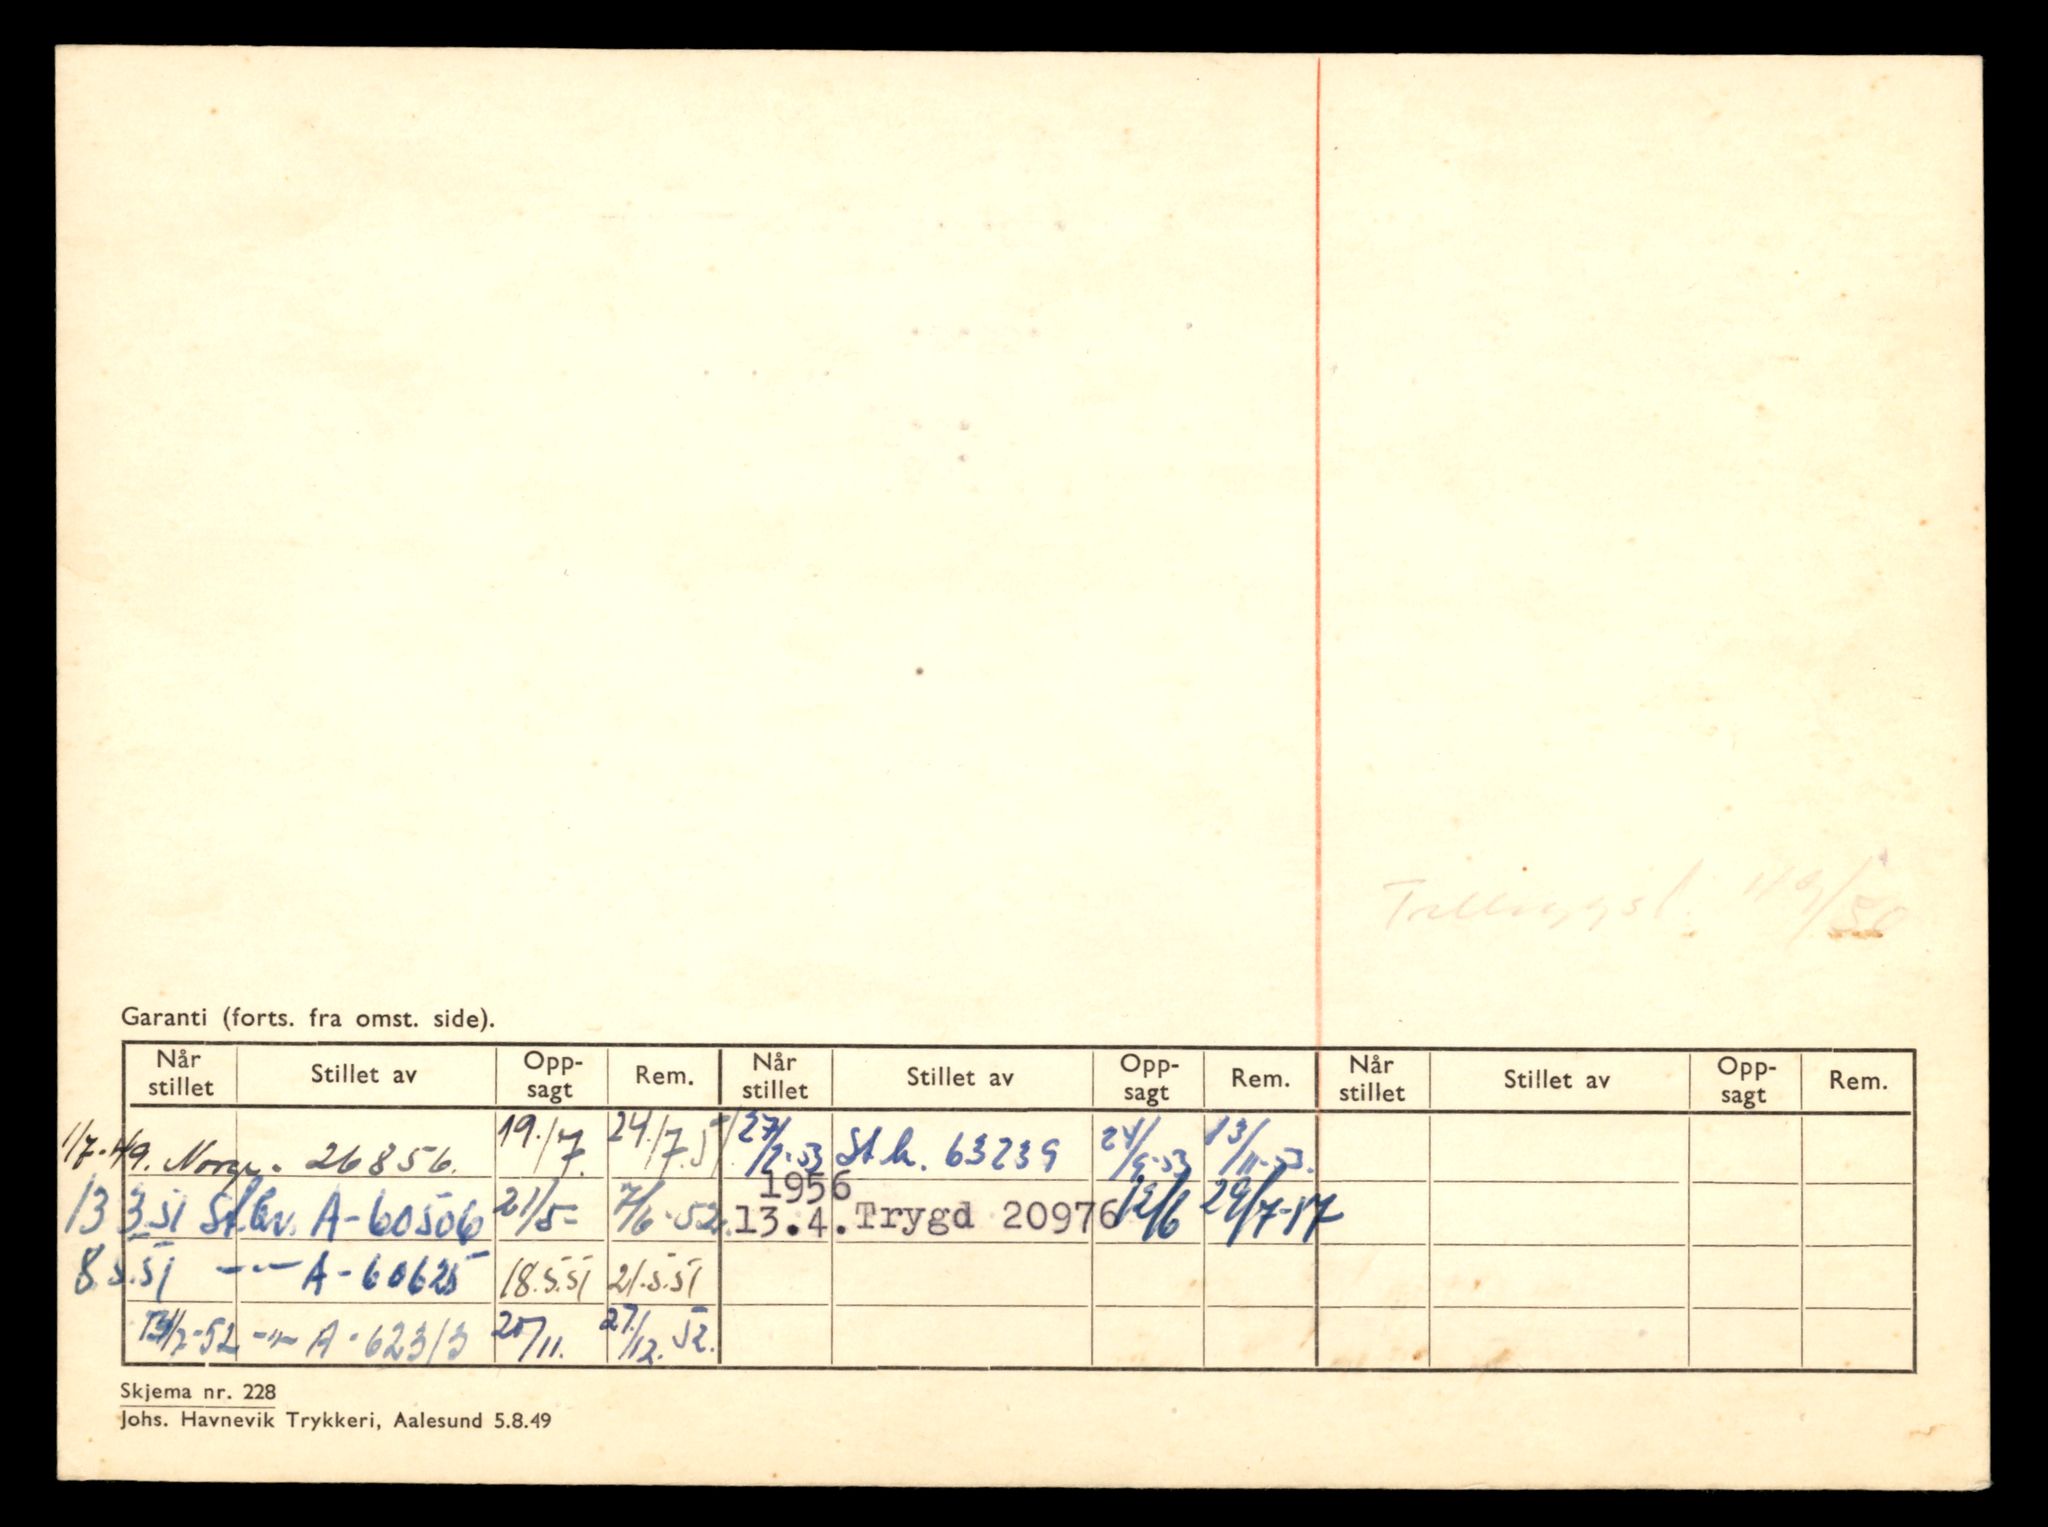 49/50
Garanti (forts. fra omst. side).
Når stillet Stillet av Opp-sagt Rem. Når stillet Stillet av Opp-sagt Rem. Når stillet Stillet av Opp-sagt Rem.
1/7-49. Norge. 26856. 19./7. 24./7.51. 27/2-53 St.h. 63239 24/9-53 13/11-53.
13 3.51 A-60506 21/5- 7/6-52. 1956 13.4. Trygd 20976 12/6 29/7-57
8.5.51 -"- A-60625 18.5.51 21.5.51
7-52 -"- A-62313 20/11. 27./12.52.
Skjema nr. 228
Johs. Havnevik Trykkeri, Aalesund 5.8.49